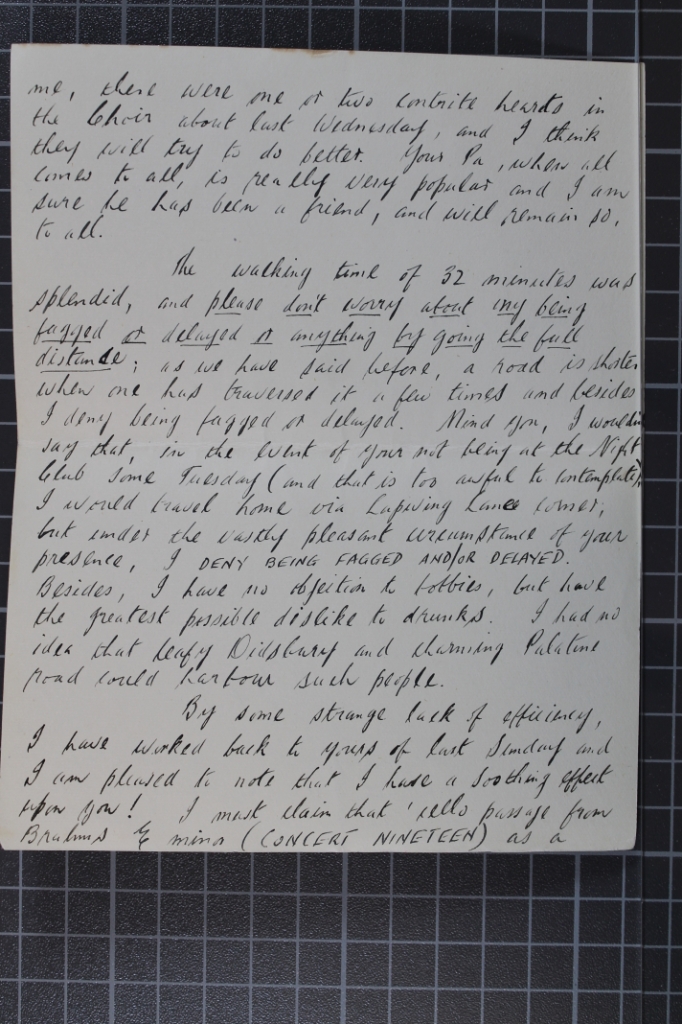 me, there were one or two contrite hearts in
the Choir about last Wednesday, and I think
they will try to do better. Your Pa, when all
comes to all, is really very popular and I am
sure he has been a friend, and will remain so,
to all.
The walking time of 32 minutes was
splendid, and please don't worry about my being
fagged or delayed or anything by going the full
distance; as we have said before, a road is shorter
when one has traversed it a few times and besides
I deny being fagged or delayed. Mind you, I wouldn't
say that, in the event of your not being at the Night
Club some Tuesday (and that is too awful to contemplate),
I would travel home via Lapwing Lane corner;
but under the vastly pleasant circumstance of your
presence, I DENY BEING FAGGED AND/OR DELAYED.
Besides, I have no objection to bobbies, but have
the greatest possible dislike to drunks. I had no
idea that leafy Didsbury and charming Palatine
road could harbour such people.
By some strange lack of efficiency,
I have worked back to yours of last Sunday and
I am pleased to note that I have a soothing effect
upon you! I must claim that 'cello passage from
Brahms E minor (CONCERT NINETEEN) as a